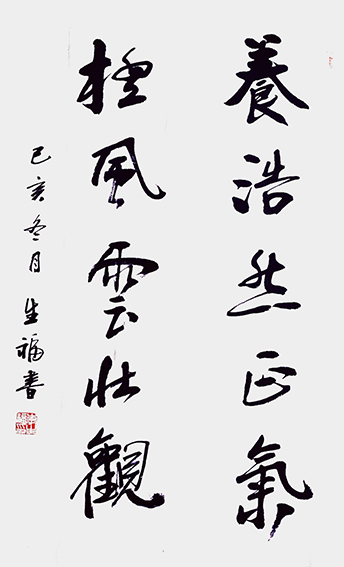 養浩然正氣
極風雲壯觀
己亥冬月生福書